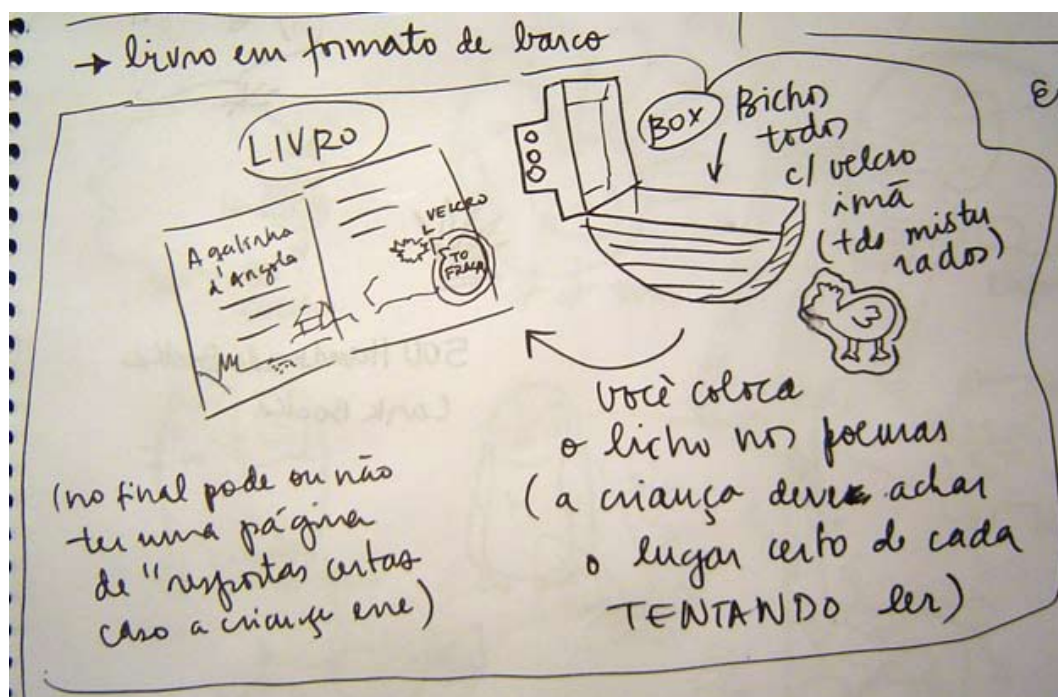 → livro em formato de barco
LIVRO
A galinha
d'angola
VELCRO
TO
FRACA
BOX
Bichos
todos
c/ velcro
imã
(tds mistu
rados)
você coloca
o bicho nos poemas
(a criança deve achar
o lugar certo de cada
TENTANDO ler)
(no final pode ou não
ter uma página
de "respostas certas
caso a criança erre)